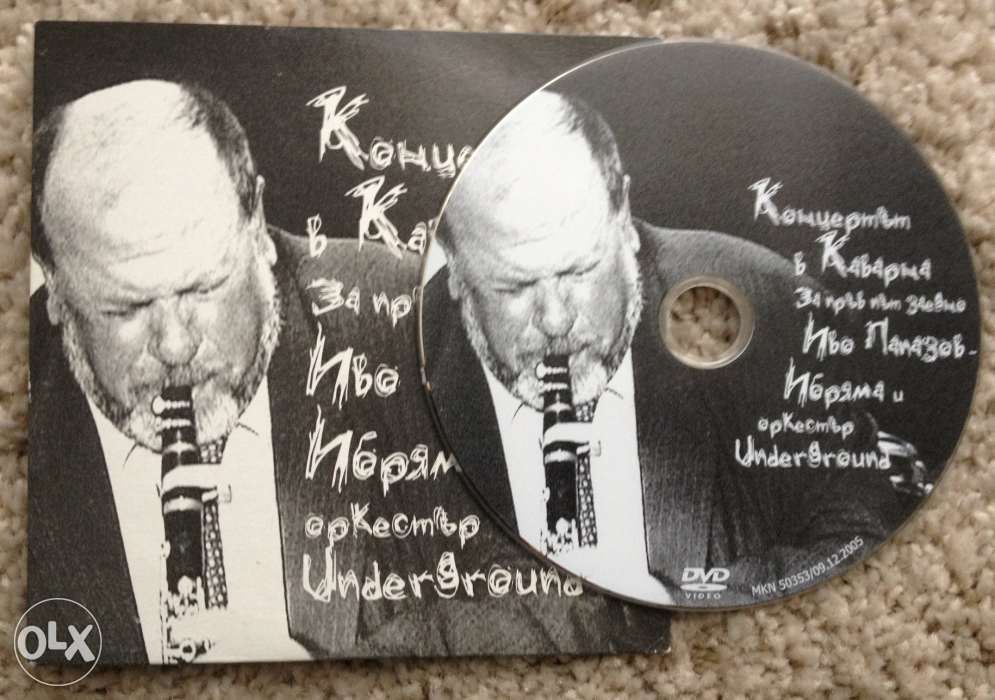 Конце
в Ка
За пр
Иво
Ибрям
оркестър
Underground
Концертът
в Каварна
За пръв път заедно
Иво Папазов-
Ибряма и
оркестър
Underground
DVD
VIDEO
MKN 50353/09.12.2005
OLX